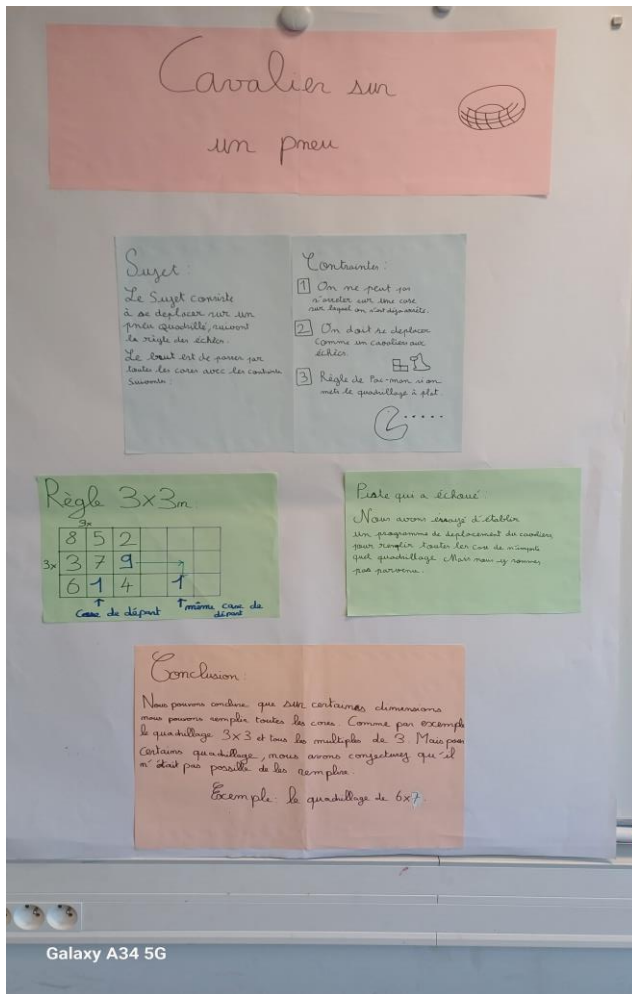 Cavalier sur
un pneu
Sujet :
Le Sujet consiste
à se deplacer sur un
pneu quadrillé, suivant
la règle des échecs.
Le but est de passer par
toutes les cases avec les
suivantes :
Contraintes :
1 On ne peut pas
s'arreter sur une case
sur laquel on s'est déja arrêté.
2 On doit se deplacer
comme un cavaliers aux
échécs
3 Règle de Pac-man si on
mets le quadrillage à plat.
Règle 3x3n
3x
8 5 2
3x 3 7 9
6 1 4 1
Case de départ
même case de
départ
Piste qui a échoué :
Nous avons essayé d'établir
un programme de deplacement du cavaliers
pour remplir toutes les case de n'importe
quel quadrillage. Mais nous y sommes
pas parvenu.
Conclusion :
Nous pouvons conclure que sur certaines dimensions
nous pouvons remplir toutes les cases. Comme par exemple
le quadrillage 3x3 et tous les multiples de 3. Mais pour
certains quadrillage, nous avons conjecturez qu'il
n'était pas possible de les remplire.
Exemple : le quadrillage de 6x7.
Galaxy A34 5G